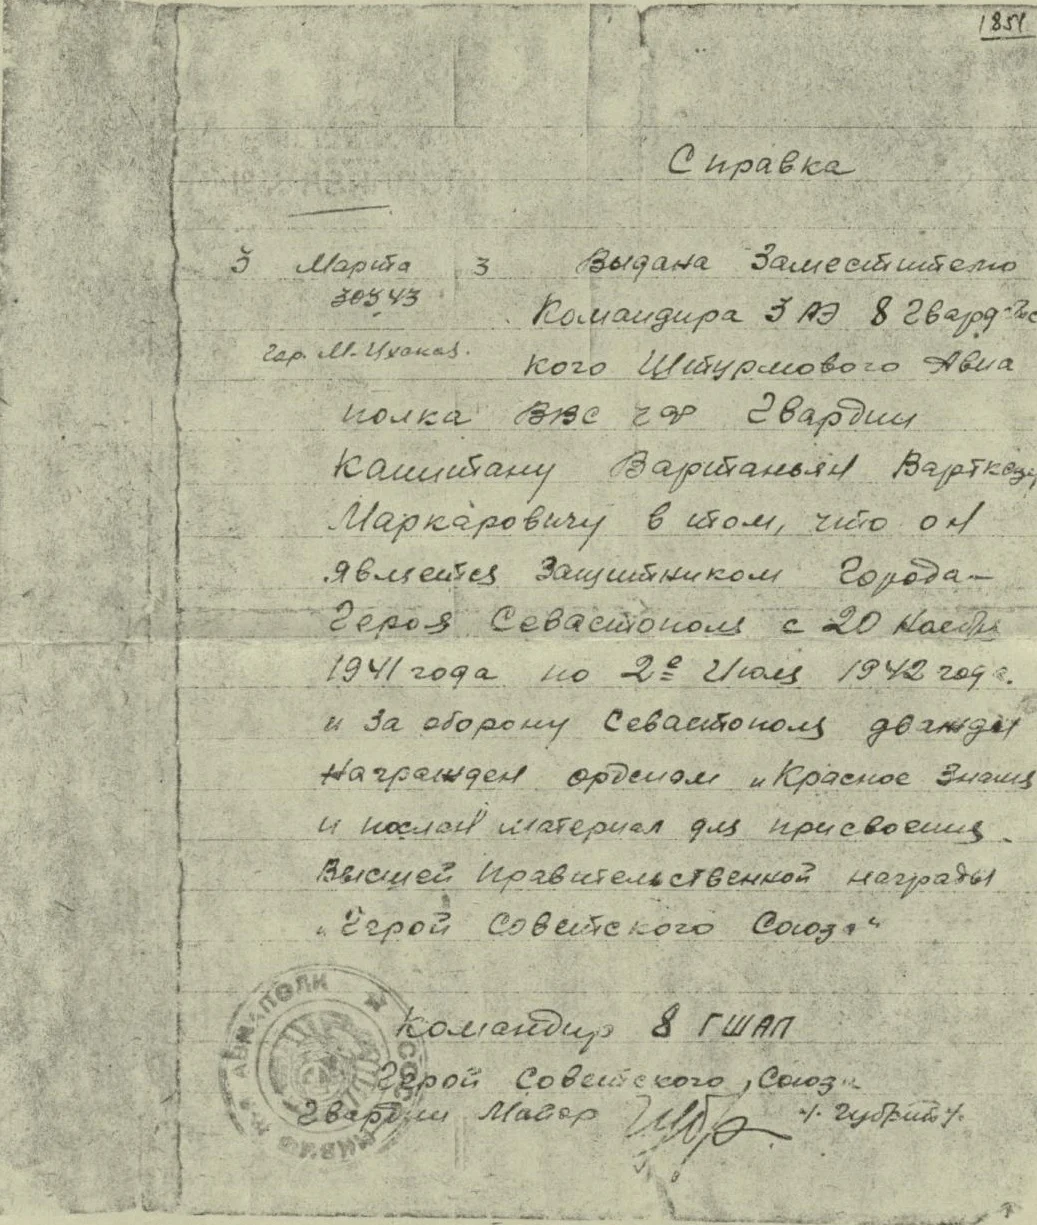 1851
Справка
3 Марта 3 Выдана Заместителю
Командира 3 АЭ 8 Гвардейс
Гор. М.
кого Штурмового Авиа
полка ВВС ЧФ Гвардии
Капитану Вартаньян Варткезу
Маркаровичу в том, что он
является Защитником Города-
Героя Севастополя с 20 Ноября
1941 года по 2е Июля 1942 года.
и За оборону Севастополя дважды
Награжден орденом „Красное Знамя
и послан материал для присвоения
Высшей Правительственной награды
„Герой Советского Союза"
Командир 8 ГШАП
Герой Советского Союза
Гвардии Майор /Губрий/.
АВИАПОЛК СССР